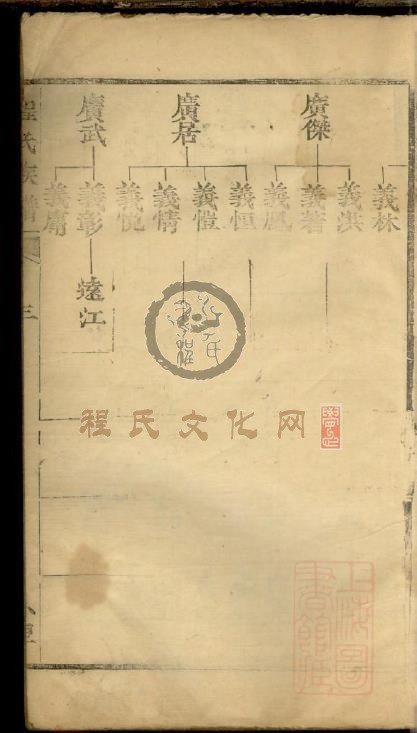 廣傑
廣居
廣武
義林
義洪
義著
義鳳
義恒
義愷
義情
義悅
義彰
義庸
遠江
程氏族譜
三
程氏文化网
上海圖書館藏